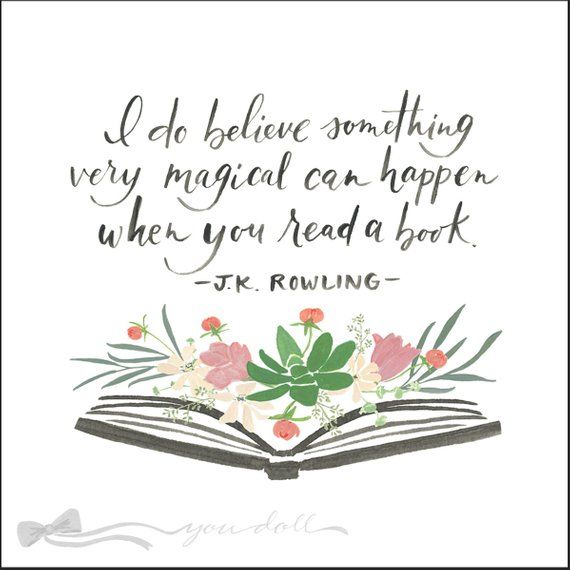 I do believe something
very magical can happen
when you read a book.
-J.K. ROWLING-
you doll